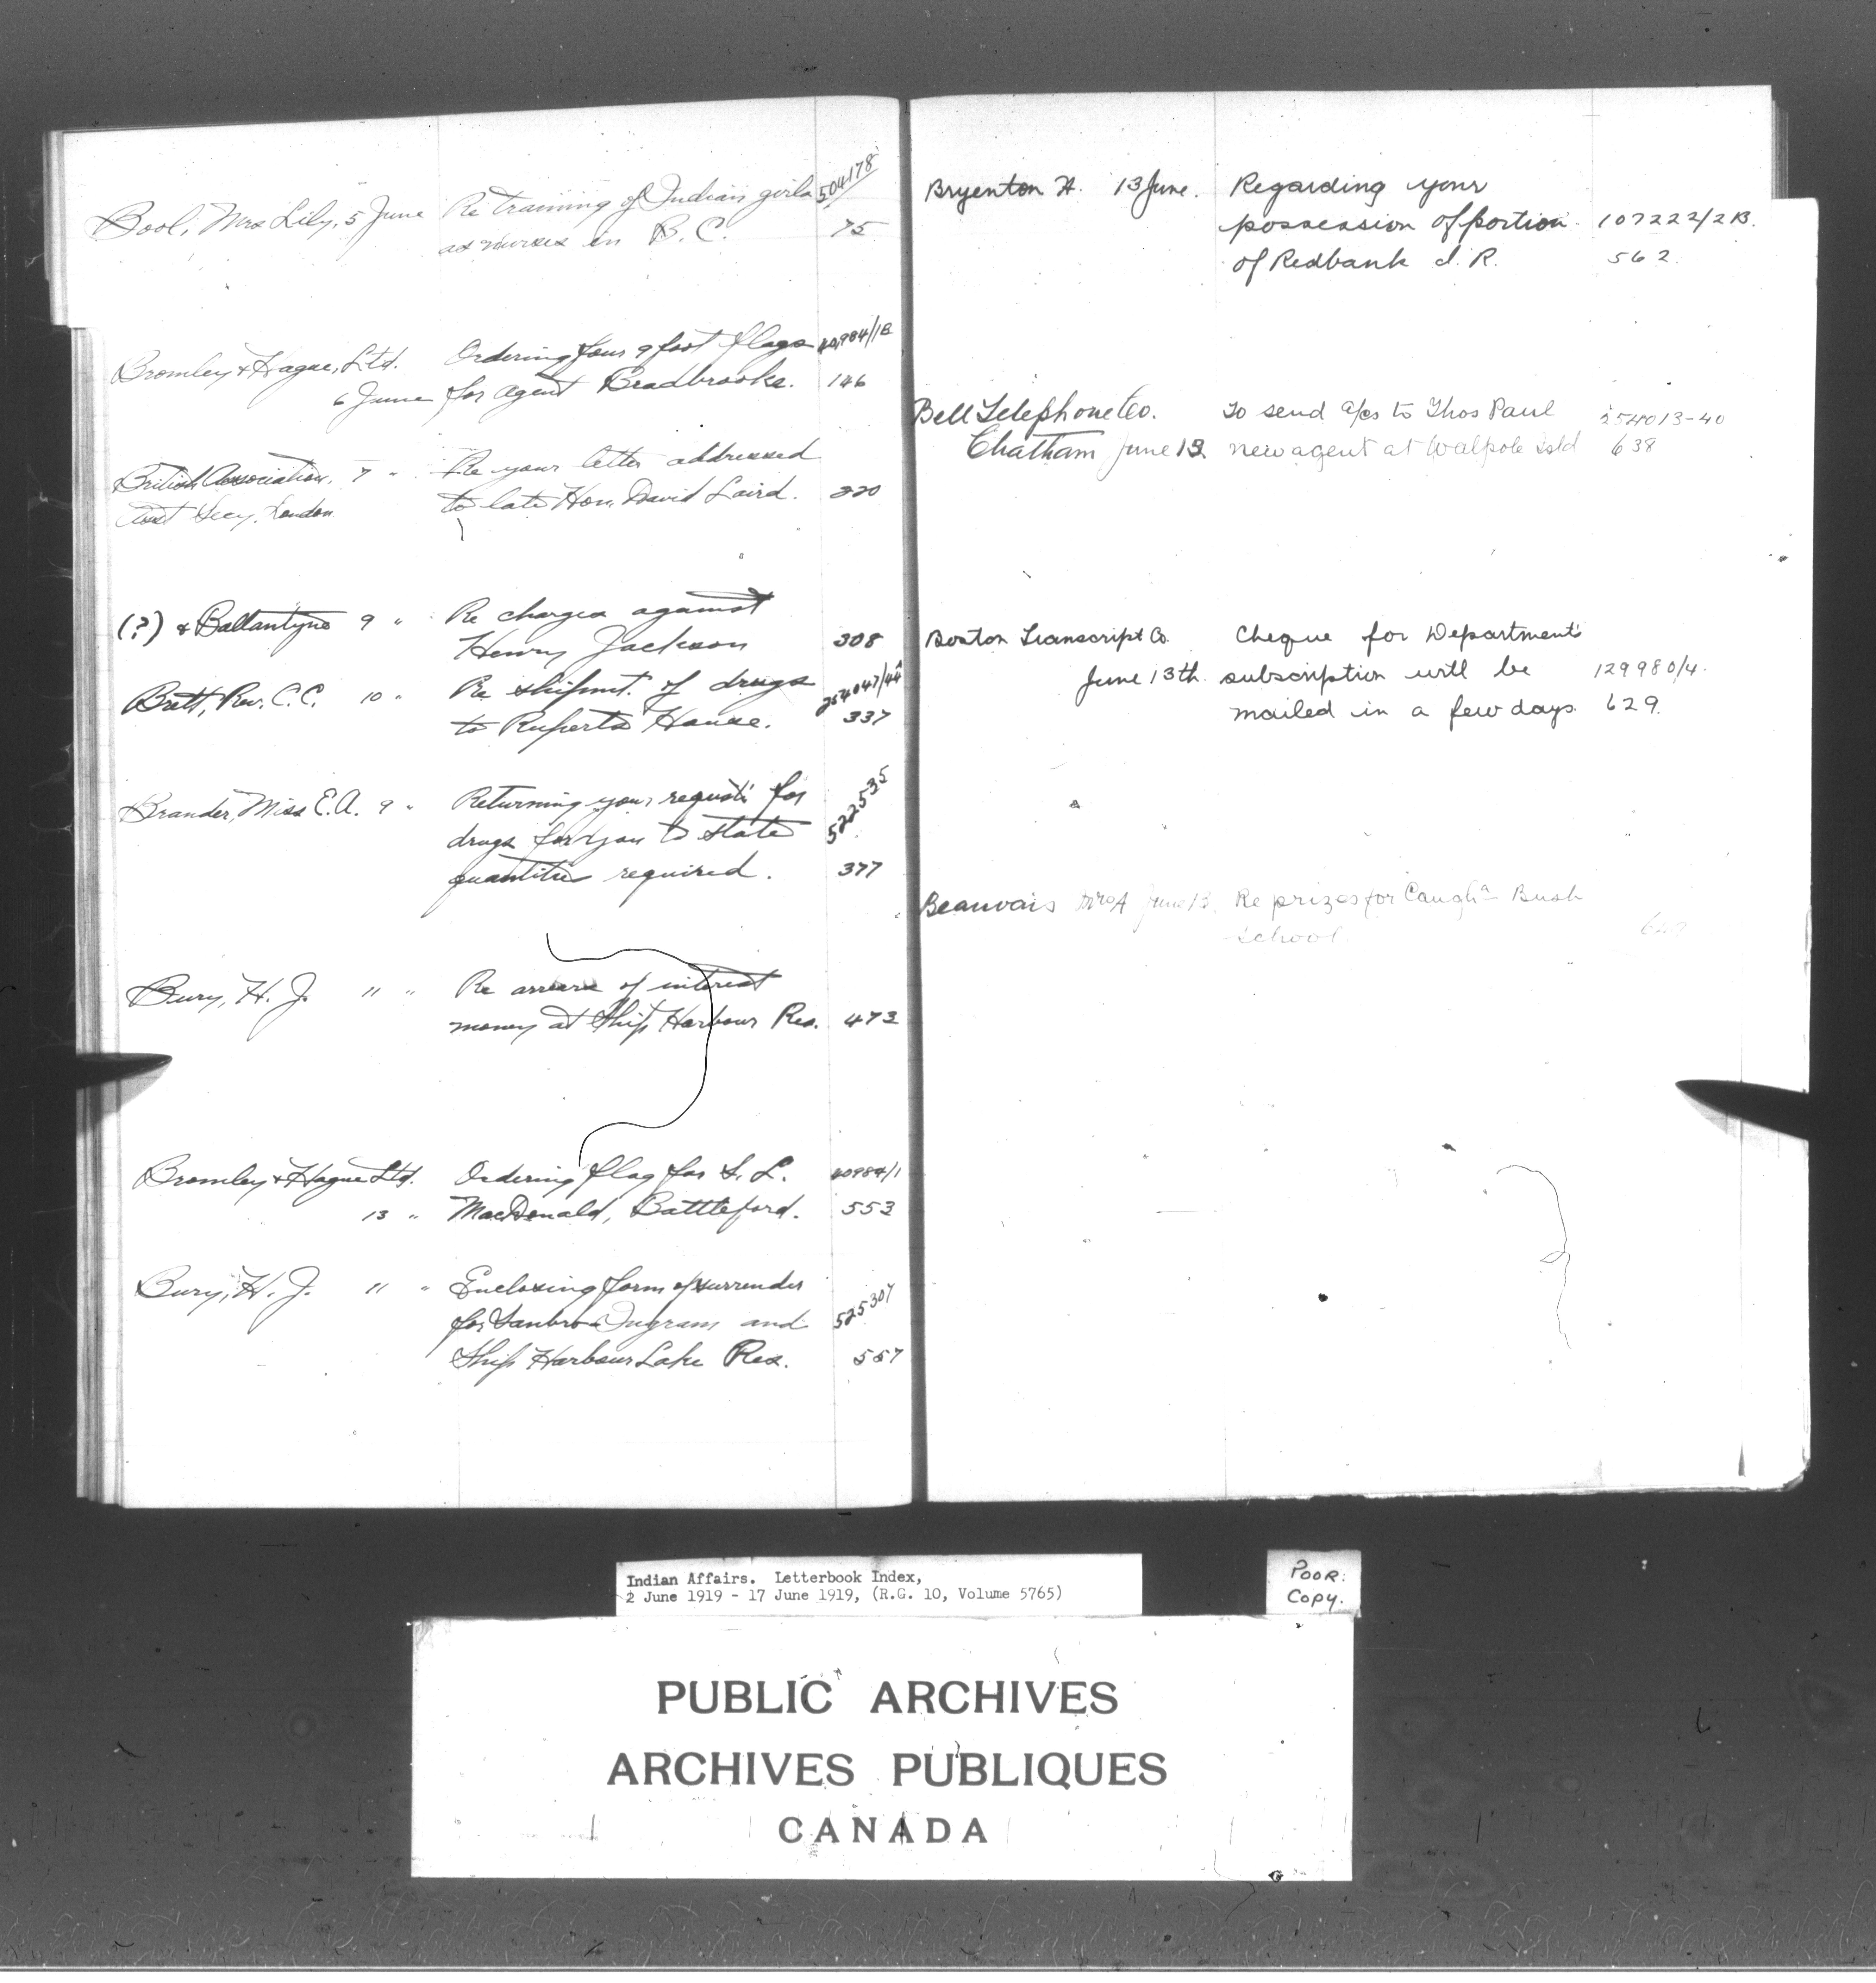 Bool, Mrs Lily, 5 June Re training of Indian girls 504178/
as nurses in B.C. 75
Bromley & Hague, Ltd. Ordering four 9 foot flags 40,984/1B
6 June for agent Bradbrooke. 146
British Association, 7 " Re your letter addressed
Asst Secy, London to late Hon. David Laird. 220
(?) & Ballantyne 9 " Re charges against
Henry Jackson 308
Brett, Rev. C.C. 10 " Re shipmt. of drugs 254047/4A
to Ruperts House. 337
Brander, Miss E.A. 9 " Returning your requist'n for 522535
drugs for you to state
quantities required. 377
Bury, H. J. 11 " Re arrears of interest
money at Ship Harbour Res. 473
Bromley & Hague Ltd. Ordering flag for S. L. 40984/1
13 " MacDonald, Battleford. 553
Bury, H. J. 11 " Enclosing form of surrender
for Sambro Ingram and 525307
Ship Harbour Lake Res. 557
Bryenton H. 13 June. Regarding your
possession of portion 107222/2B.
of Redbank I. R. 562.
Bell Telephone Co. To send a/cs to Thos Paul 254013-40
Chatham June 13 new agent at Walpole Isld 638
Boston Transcript Co. Cheque for Department's
June 13th. subscription will be 129980/4.
mailed in a few days. 629.
Beauvais Mrs A June 13 Re prizes for Caugh'a Bush
School.
Indian Affairs. Letterbook Index,
2 June 1919 - 17 June 1919, (R.G. 10, Volume 5765)
POOR.
COPY.
PUBLIC ARCHIVES
ARCHIVES PUBLIQUES
CANADA